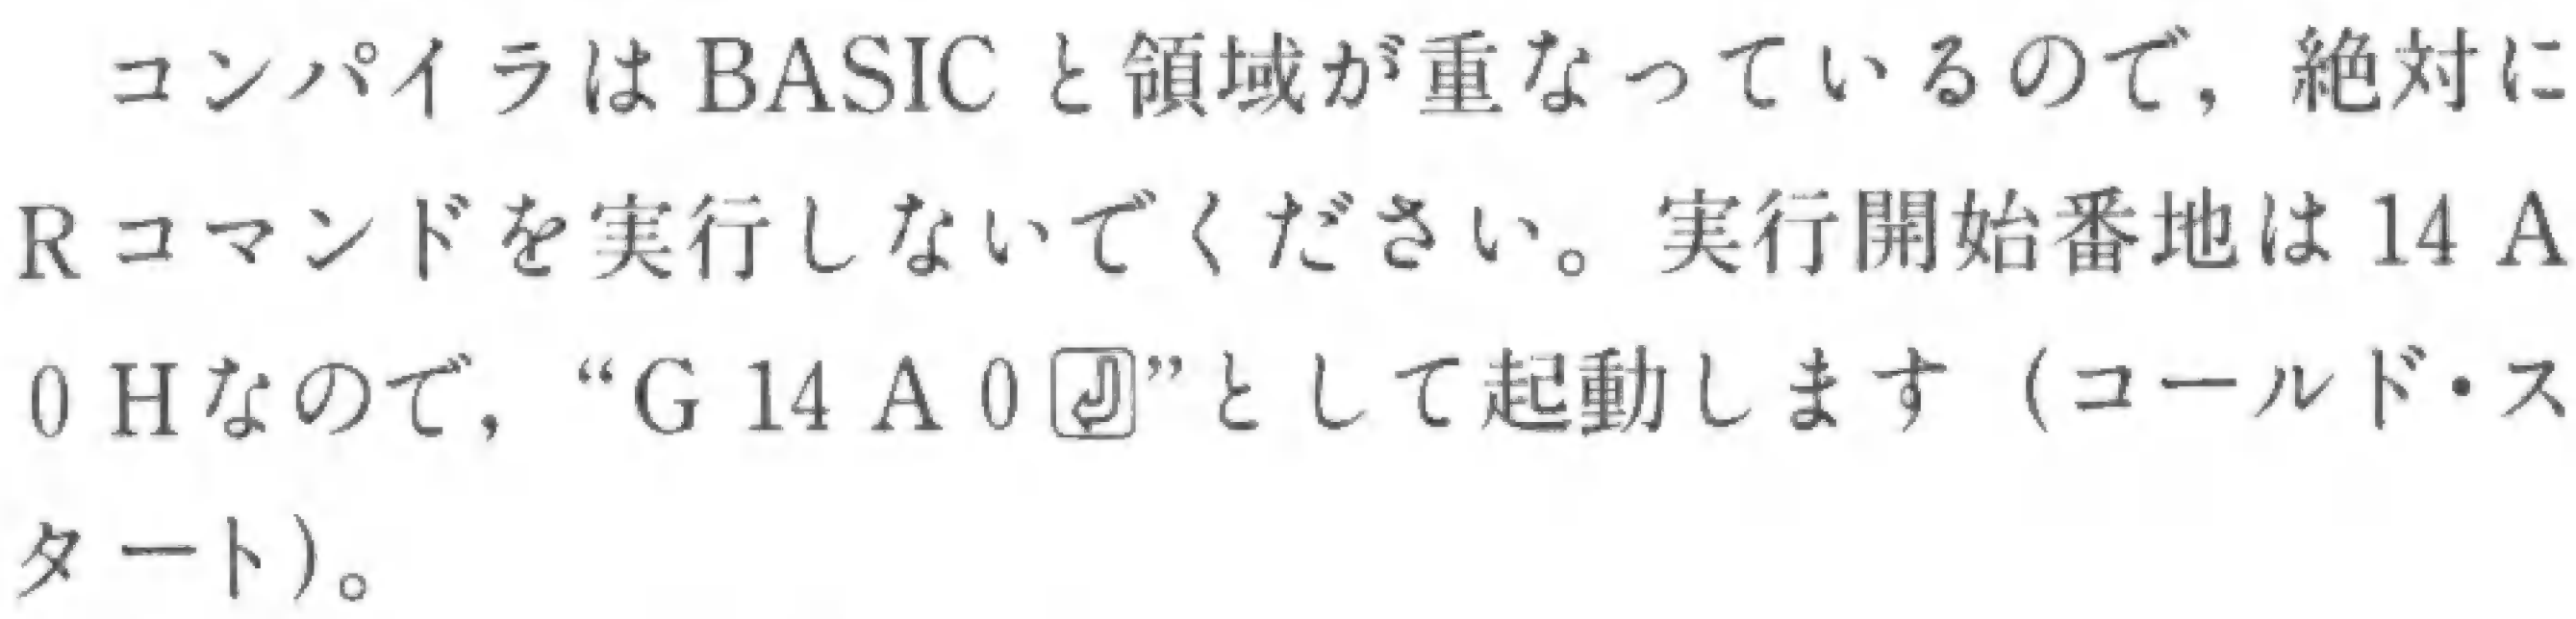 コンパイラは BASIC と領域が重なっているので，絶対に
R コマンドを実行しないでください。実行開始番地は 14 A
0 H なので，“G 14 A 0 ⏎”として起動します（コールド・ス
タート）。